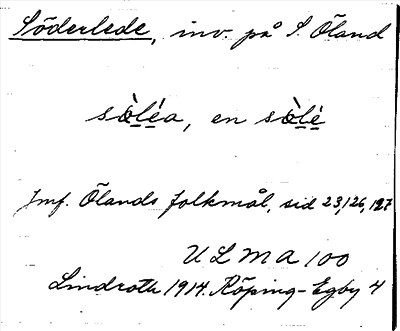 Söderlede, inv. på S. Öland
sò̱ḻé̱a, en sò̱ḻè̱
Jmf. Ölands folkmål, sid 23, 126, 127
ULMA 100
Lindroth 1914. Köping-Egby 4